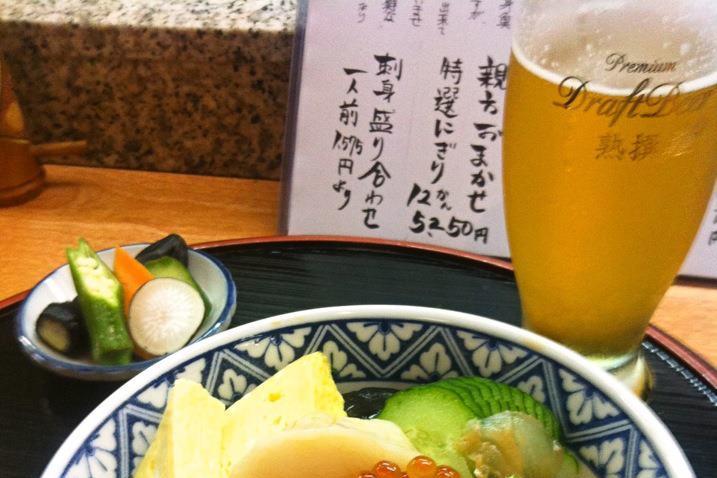 親方おまかせ
特選にぎり 12かん
5,250円
刺身盛り合わせ
一人前 1,575円より
Premium
Draft Beer
熟撰